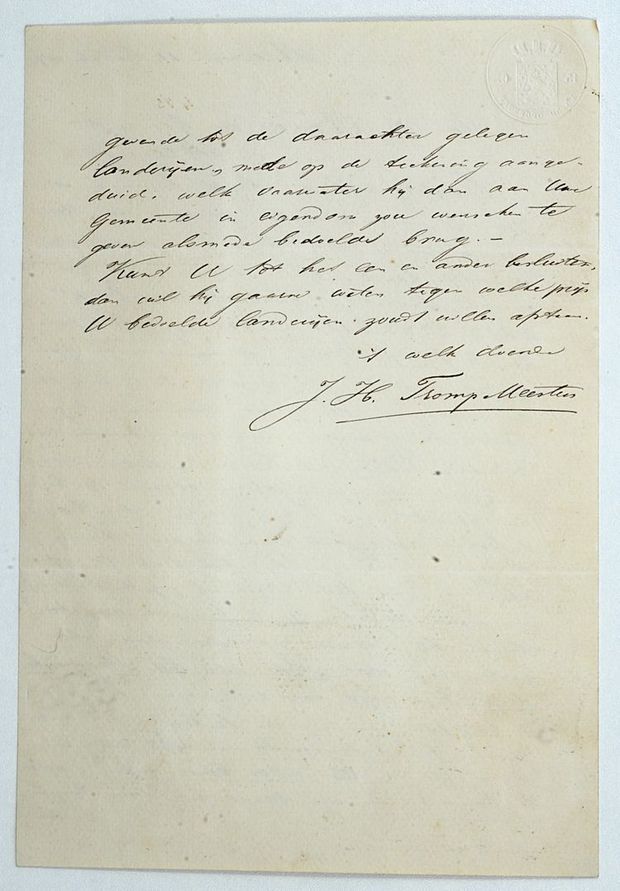 gevende tot de daarachter gelegen
landerijen, mede op de teekening aange-
duid, welk vaarwater hij dan aan Uwe
Gemeente in eigendom zou wenschen te
geven alsmede bedoelde brug. –
Kunt U tot het een en ander besluiten,
dan wil hij gaarne weten tegen welke prijs
U bedoelde landerijen zoudt willen afstaan.
't welk doende
J. H. Tromp Meesters